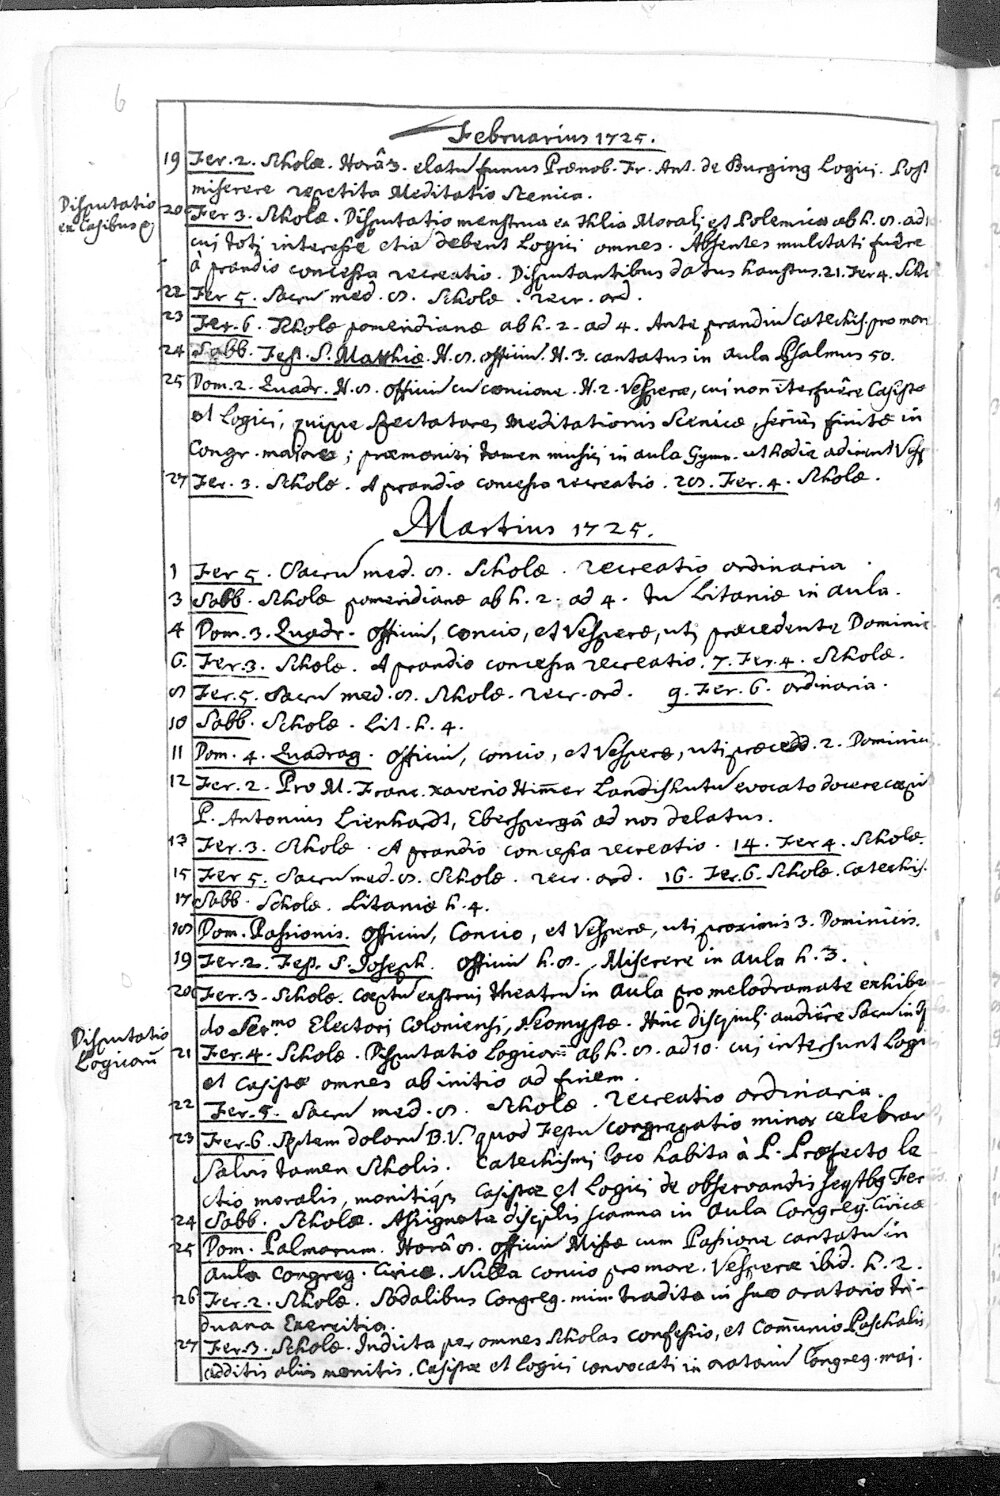 6
Februarius 1725.
19 Fer. 2. Scholæ. Horâ 3. elatũ funus Prænob. Fr. Ant. de Burging Logici. Post
miserere repetita Meditatio Scenica.
Disputatio
ex Casibus
20 Fer 3. Scholæ. Disputatio menstrua ex Morali et Polemica ab h. 8. ad
cui toti interesse etiã debent Logici omnes. Absentes mulctati fuêre
à prandio concessa recreatio. Disputantibus datus haustus. 21. Fer 4. Scho
22 Fer 5. Sacrũ med. 8. Scholæ. recr. ord.
23 Fer. 6. Scholæ pomeridianæ ab h. 2. ad 4. Ante prandiũ Catechis. pro mor
24 Sabb. Fest. S. Matthiæ. H. 8. officiũ. H. 3. cantatus in Aula Psalmus 50.
25 Dom. 2. Quadr. H. 8. Officiũ cũ concione. H. 2. Vesperæ, cui non ĩterfuêre Casistæ
et Logici, quippe spectatores Meditationis Scenicæ, seriùs finitæ in
Congr. majore; præmoniti tamen musici in aula Gymn. ut hodie adirent Vesp
27 Fer. 3. Scholæ. A prandio concessa recreatio. 28. Fer. 4. Scholæ.
Martius 1725.
1 Fer 5. Sacrũ med. 8. Scholæ. recreatio ordinaria.
3 Sabb. Scholæ pomeridianæ ab h. 2. ad 4. tũ Litaniæ in Aula.
4 Dom. 3. Quadr. Officiũ, Concio, et Vesperæ, uti præcedente Dominic
6. Fer. 3. Scholæ. A prandio concessa recreatio. 7. Fer. 4. Scholæ.
8 Fer. 5. Sacrũ med. 8. Scholæ. recr. ord. 9. Fer. 6. ordinaria.
10 Sabb. Scholæ. Lit. h. 4.
11 Dom. 4. Quadrag. Officiũ, concio, et Vesperæ, uti præcedd. 2. Dominicis
12 Fer. 2. Pro M. Franc. Xaverio Him̃er Landishutũ evocato docere cæpit
P. Antonius Lienhardt, Eberspergâ ad nos delatus.
13 Fer. 3. Scholæ. A prandio concessa recreatio. 14. Fer 4. Scholæ.
15 Fer 5. Sacrũ med. 8. Scholæ. recr. ord. 16. Fer. 6. Scholæ. Catechis.
17 Sabb. Scholæ. Litaniæ h. 4.
18 Dom. Passionis. Officiũ, Concio, et Vesperæ, uti proximis 3. Dominicis.
19 Fer. 2. Fest. S. Joseph. Officiũ h. 8. Miserere in Aula h. 3.
20 Fer. 3. Scholæ. Cæptũ exstrui theatrũ in Aula pro melodramate exhibe
do Ser.mo Electori Coloniensi, Neomystæ. Hinc discipuli audiêre Sacrũ in
Disputatio
Logicorũ
21 Fer. 4. Scholæ. Disputatio Logicorũ ab h. 8. ad 10. cui intersunt Logi
et Casistæ omnes ab initio ad finem.
22 Fer. 5. Sacrũ med. 8. Scholæ. recreatio ordinaria.
23 Fer. 6. Septem dolorũ B. V. quod Festũ congregatio minor celebrav
Salvis tamen Scholis. Catechismi loco habita à P. Præfecto le
ctio moralis, monitiq; Casistæ et Logici de observandis seqtbq Fer
24 Sabb. Scholæ. Assignata disciplis scamna in Aula Congreg. Civicæ
25 Dom. Palmarum. Horâ 8. Officiũ Missæ cum Passione cantatũ in
Aula Congreg. Civicæ. Nulla concio pro more. Vesperæ ibid. h. 2.
26 Fer. 2. Scholæ. Sodalibus Congreg. min. tradita in suo oratorio tri-
duana Exercitia.
27 Fer. 3. Scholæ. Indicta per omnes Scholas confessio, et Com̃unio Paschalis,
additis aliis monitis. Casistæ et Logici convocati in oratoriũ Congreg. maj.